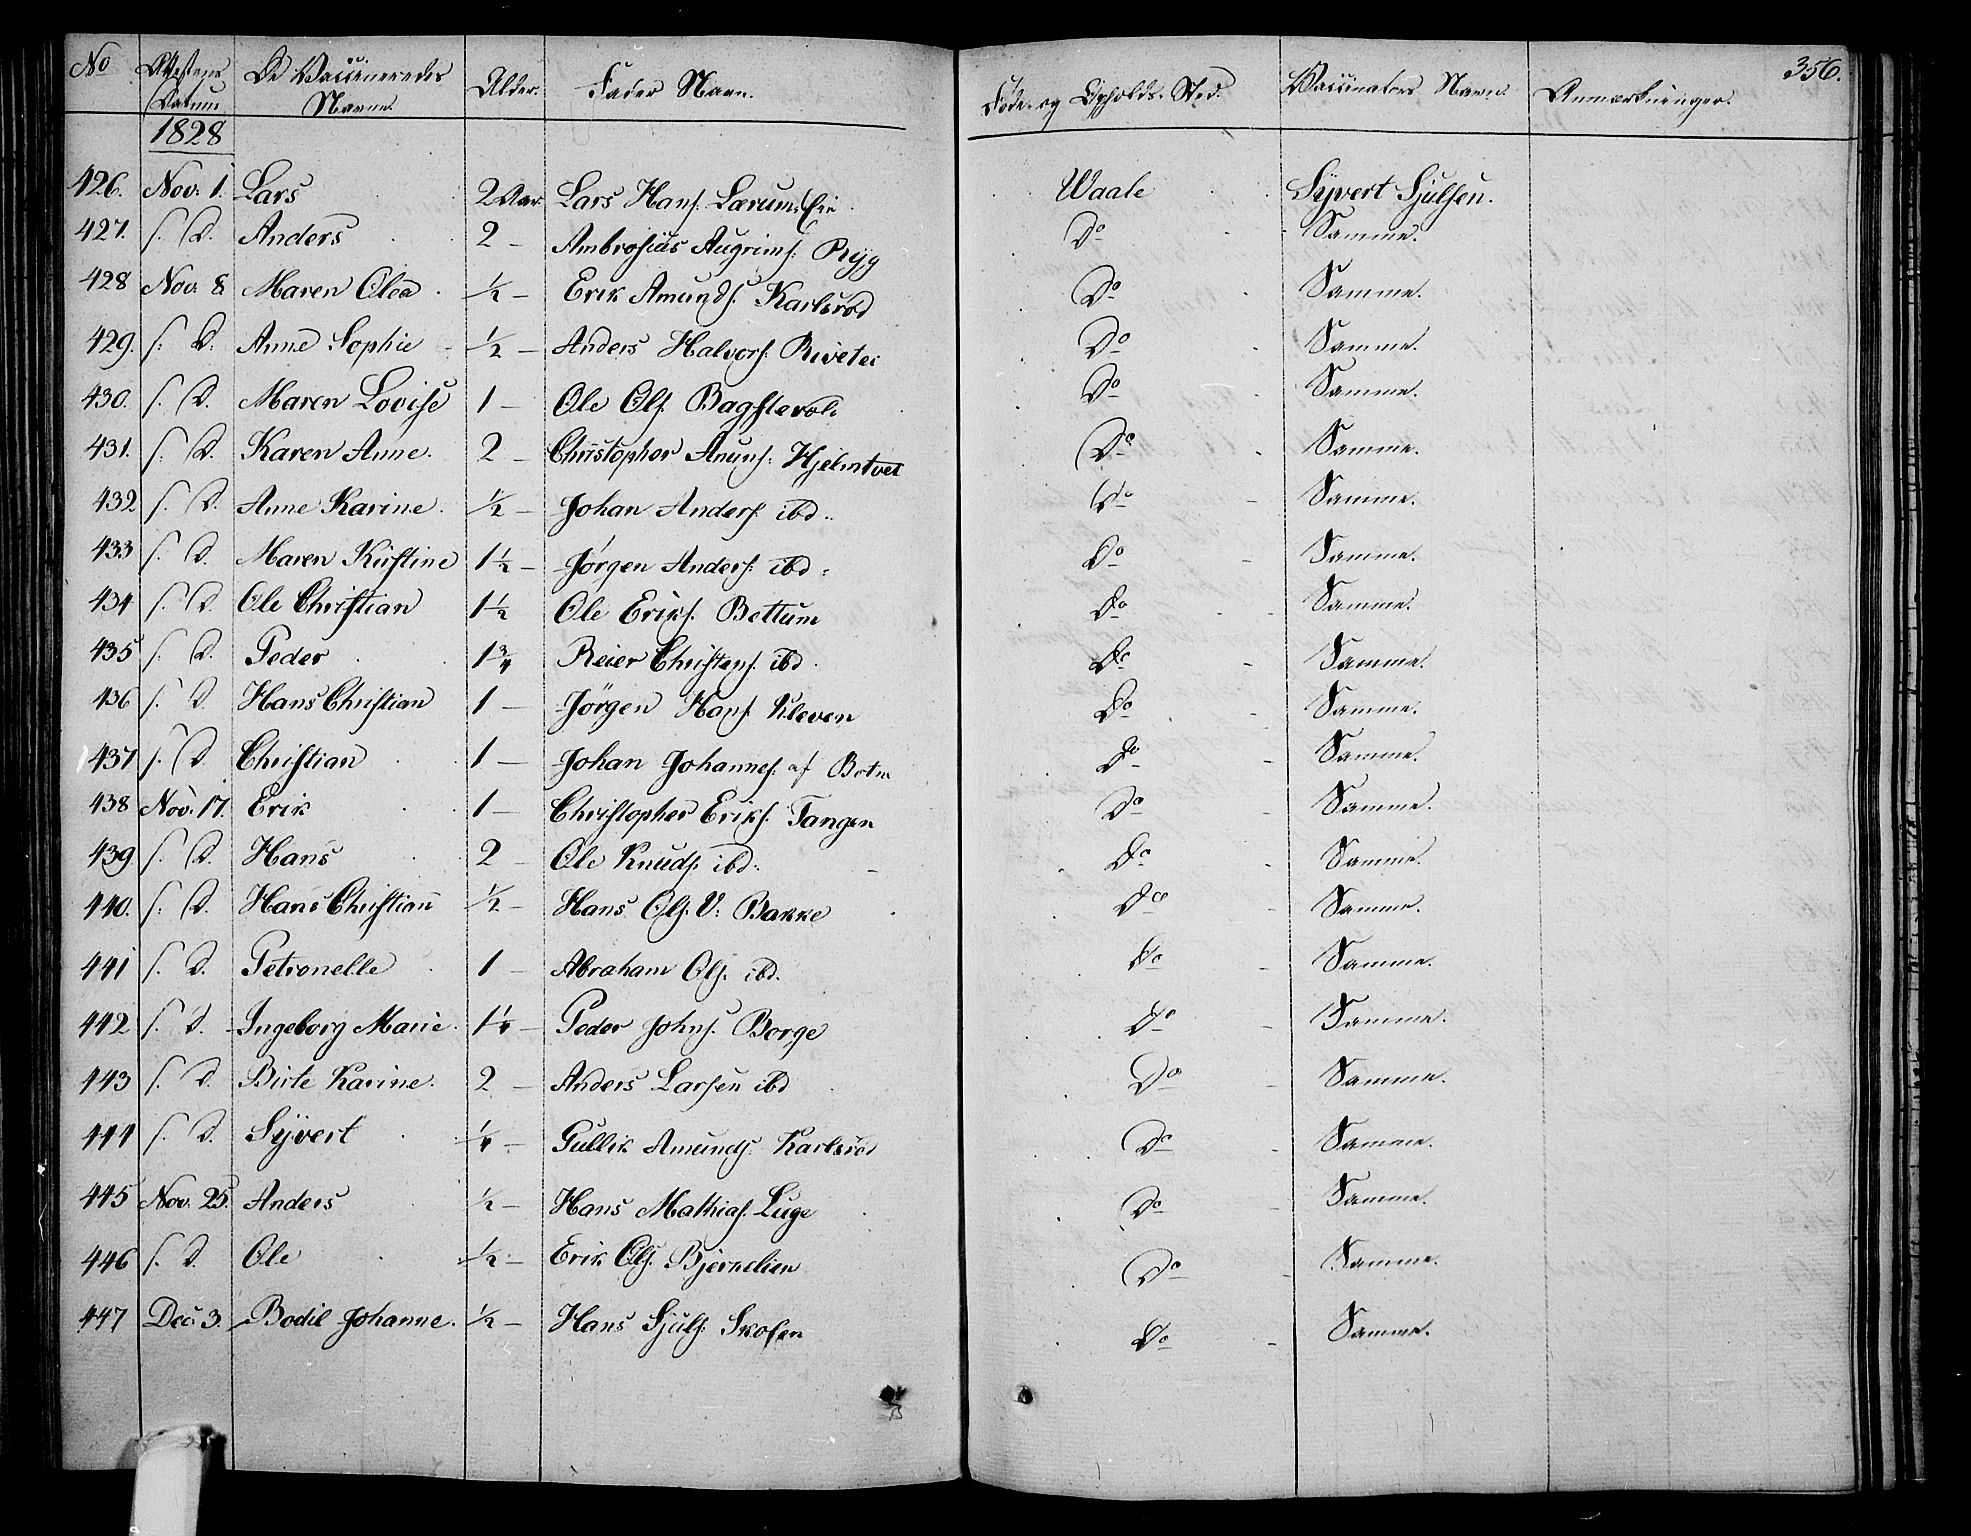 No Attestens Datum De Vaccineredes Navne. Alder. Fader Navn. Føde- og Opholds-Sted. Vaccinators Navn. Anmærkninger. 356.
1828
426. Nov: 1. Lars 2 Aar Lars Hans. Lærum. Waale Syvert Sjulsen.
427. s. D. Anders 2 — Ambrosius Augrims: Ryg Do Samme.
428 Nov: 8. Maren Olea ½ — Erik Amunds. Karlsrød Do Samme.
429. s. D. Anne Sophie ½ — Anders Halvors: Do Samme.
430. s. D. Maren Lovise 1 — Ole Ols. Do Samme.
431. s. D. Karen Anne. 2 — Christopher Anuns: Hjelmtvet Do Samme.
432 s. D. Anne Karine. ½ — Johan Anders. ibd. Do Samme.
433 s. d. Maren Kirstine 1½ — Jörgen Anders. ibd: Do Samme.
434 s. D. Ole Christian 1½ Ole Eriks. Bettum Do Samme.
435 s. D. Peder 1¾ Reier Christens. ibd. Do Samme.
436 s. D. Hans Christian 1 — Jörgen Hans. Kleven Do Samme.
437 s. D Christian 1 — Johan Johannes. af Botn Do Samme.
438 Nov: 17. Erik 1 — Christopher Eriks. Tangen Do Samme.
439 s. D. Hans 2 — Ole Knuds. ibd: Do Samme.
440. s. D. Hans Christian ½ — Hans Ols. V: Bakke Do Samme.
441 s. D. Petronelle 1 — Abraham Ols. ibd. Do Samme.
442 s. d. Ingeborg Marie. 1¼ — Peder Johns. Borge Do Samme.
443 s. d. Birte Karine. 2 — Anders Larsen ibd Do Samme.
444 s. D. Syvert ¼ — Gullik Amunds. Karlsrød Do Samme.
445 Nov. 25. Anders ½ — Hans Mathias. Luge Do Samme.
446 s. D. Ole ½ — Erik Ols. Bjernelien Do Samme.
447 Dec: 3. Bodil Johanne. ½ — Hans Sjuls. Skofen Do Samme.